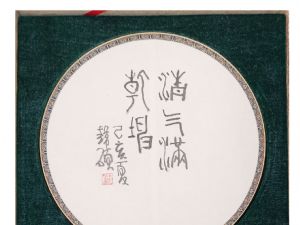 清气滿
乾坤
己亥夏